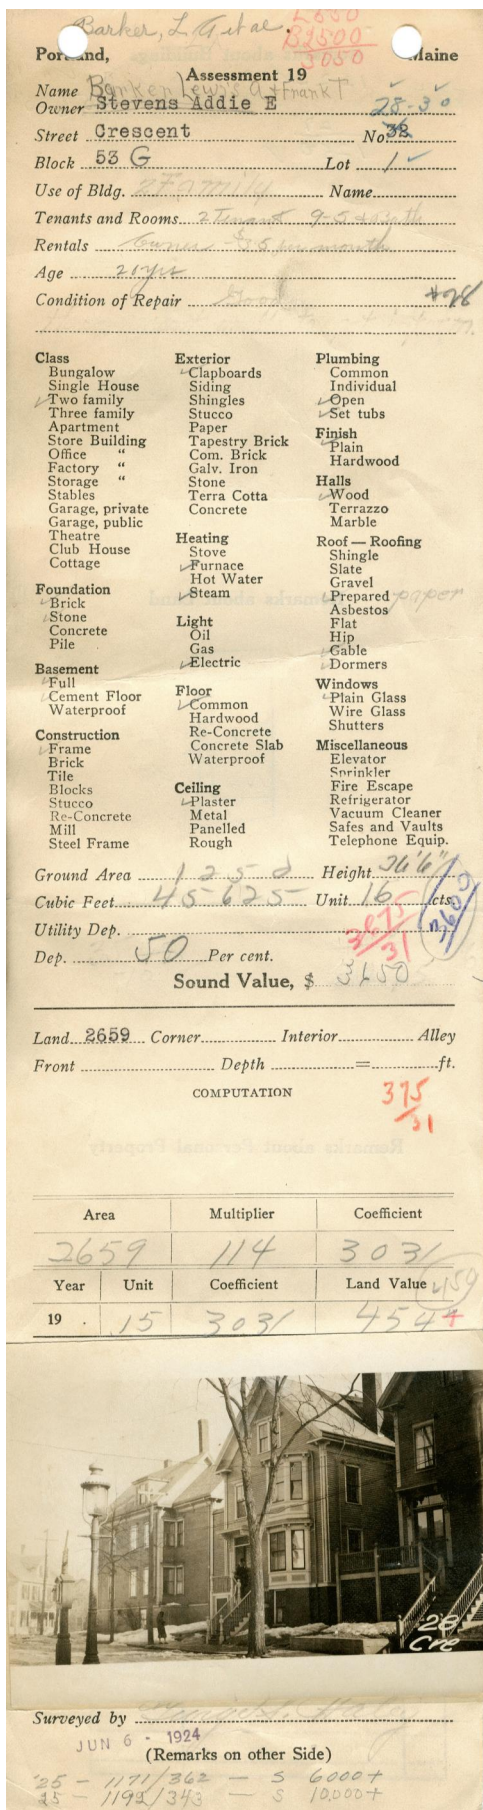 Barker, L A et ae.
L 550
B 2500
3050
Portland, Maine
Assessment 19
Name Barker Lewis A + Frank T
Owner Stevens Addie E 28-30
Street Crescent No. 32
Block 53 G Lot 1
Use of Bldg. 2 Family Name
Tenants and Rooms 2 Tenant 9-5
Rentals Owner - $35 per month
Age 20 yrs
Condition of Repair Good #28
Class
Bungalow
Single House
Two family
Three family
Apartment
Store Building
Office "
Factory "
Storage "
Stables
Garage, private
Garage, public
Theatre
Club House
Cottage
Foundation
Brick
Stone
Concrete
Pile
Basement
Full
Cement Floor
Waterproof
Construction
Frame
Brick
Tile
Blocks
Stucco
Re-Concrete
Mill
Steel Frame
Exterior
Clapboards
Siding
Shingles
Stucco
Paper
Tapestry Brick
Com. Brick
Galv. Iron
Stone
Terra Cotta
Concrete
Heating
Stove
Furnace
Hot Water
Steam
Light
Oil
Gas
Electric
Floor
Common
Hardwood
Re-Concrete
Concrete Slab
Waterproof
Ceiling
Plaster
Metal
Panelled
Rough
Plumbing
Common
Individual
Open
Set tubs
Finish
Plain
Hardwood
Halls
Wood
Terrazzo
Marble
Roof — Roofing
Shingle
Slate
Gravel
Prepared paper
Asbestos
Flat
Hip
Gable
Dormers
Windows
Plain Glass
Wire Glass
Shutters
Miscellaneous
Elevator
Sprinkler
Fire Escape
Refrigerator
Vacuum Cleaner
Safes and Vaults
Telephone Equip.
Ground Area 1250 Height 36'6"
Cubic Feet 45625 Unit 16 cts. 3600
Utility Dep. 3675/31
Dep. 50 Per cent.
Sound Value, $ 3650
Land 2659 Corner Interior Alley
Front Depth = ft.
COMPUTATION 375/31
Area Multiplier Coefficient
2659 114 3031
Year Unit Coefficient Land Value 459
19 . 15 3031 454 +
28
Cre
Surveyed by
JUN 6 - 1924
(Remarks on other Side)
'25 - 1171/362 - S 6000+
25 - 1192/343 - S 10,000+